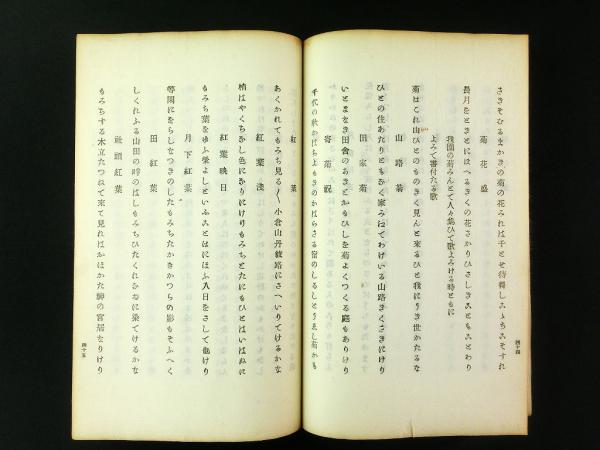 さきそむるまかきの菊の花みれは千とせ待得しこゝちこそすれ
菊花盛
長月をときとにほへるきくの花さかりひさしきこともことわり
我園の菊みんとて人々集ひて歌よみける時ともに
よみて書付たる歌
菊はこれ山ひとのものきく見んと来るひと我にりき世かたるな
山路菊
ひとの住あたりともなく家みねてわけいる山路きくさきにけり
田家菊
いとまなき田舎のあきとかもひしを菊よくつくる庭もありけり
寄菊祝
千代の秋かはらしよものかはらさる宿のしるしとうゑし菊かも
四十四
紅葉
あくかれてもみち見る〳〵小倉山丹波路にさへいりてけるかな
紅葉浅
梢はやくちかし色になりにけりもみちとたにもひとはいはぬに
紅葉映日
もみち葉をゆふ栄よしといふことはにほふ入日をさして也けり
月下紅葉
等閑にをらしなつきのしたもみちたかきかつらの影もそふへく
田紅葉
しくれふる山田の畔のはしもみちひたくれなゐに染てけるかな
社頭紅葉
もみちする木立たつねて来て見れはかほかた神の宮居なりけり
四十五